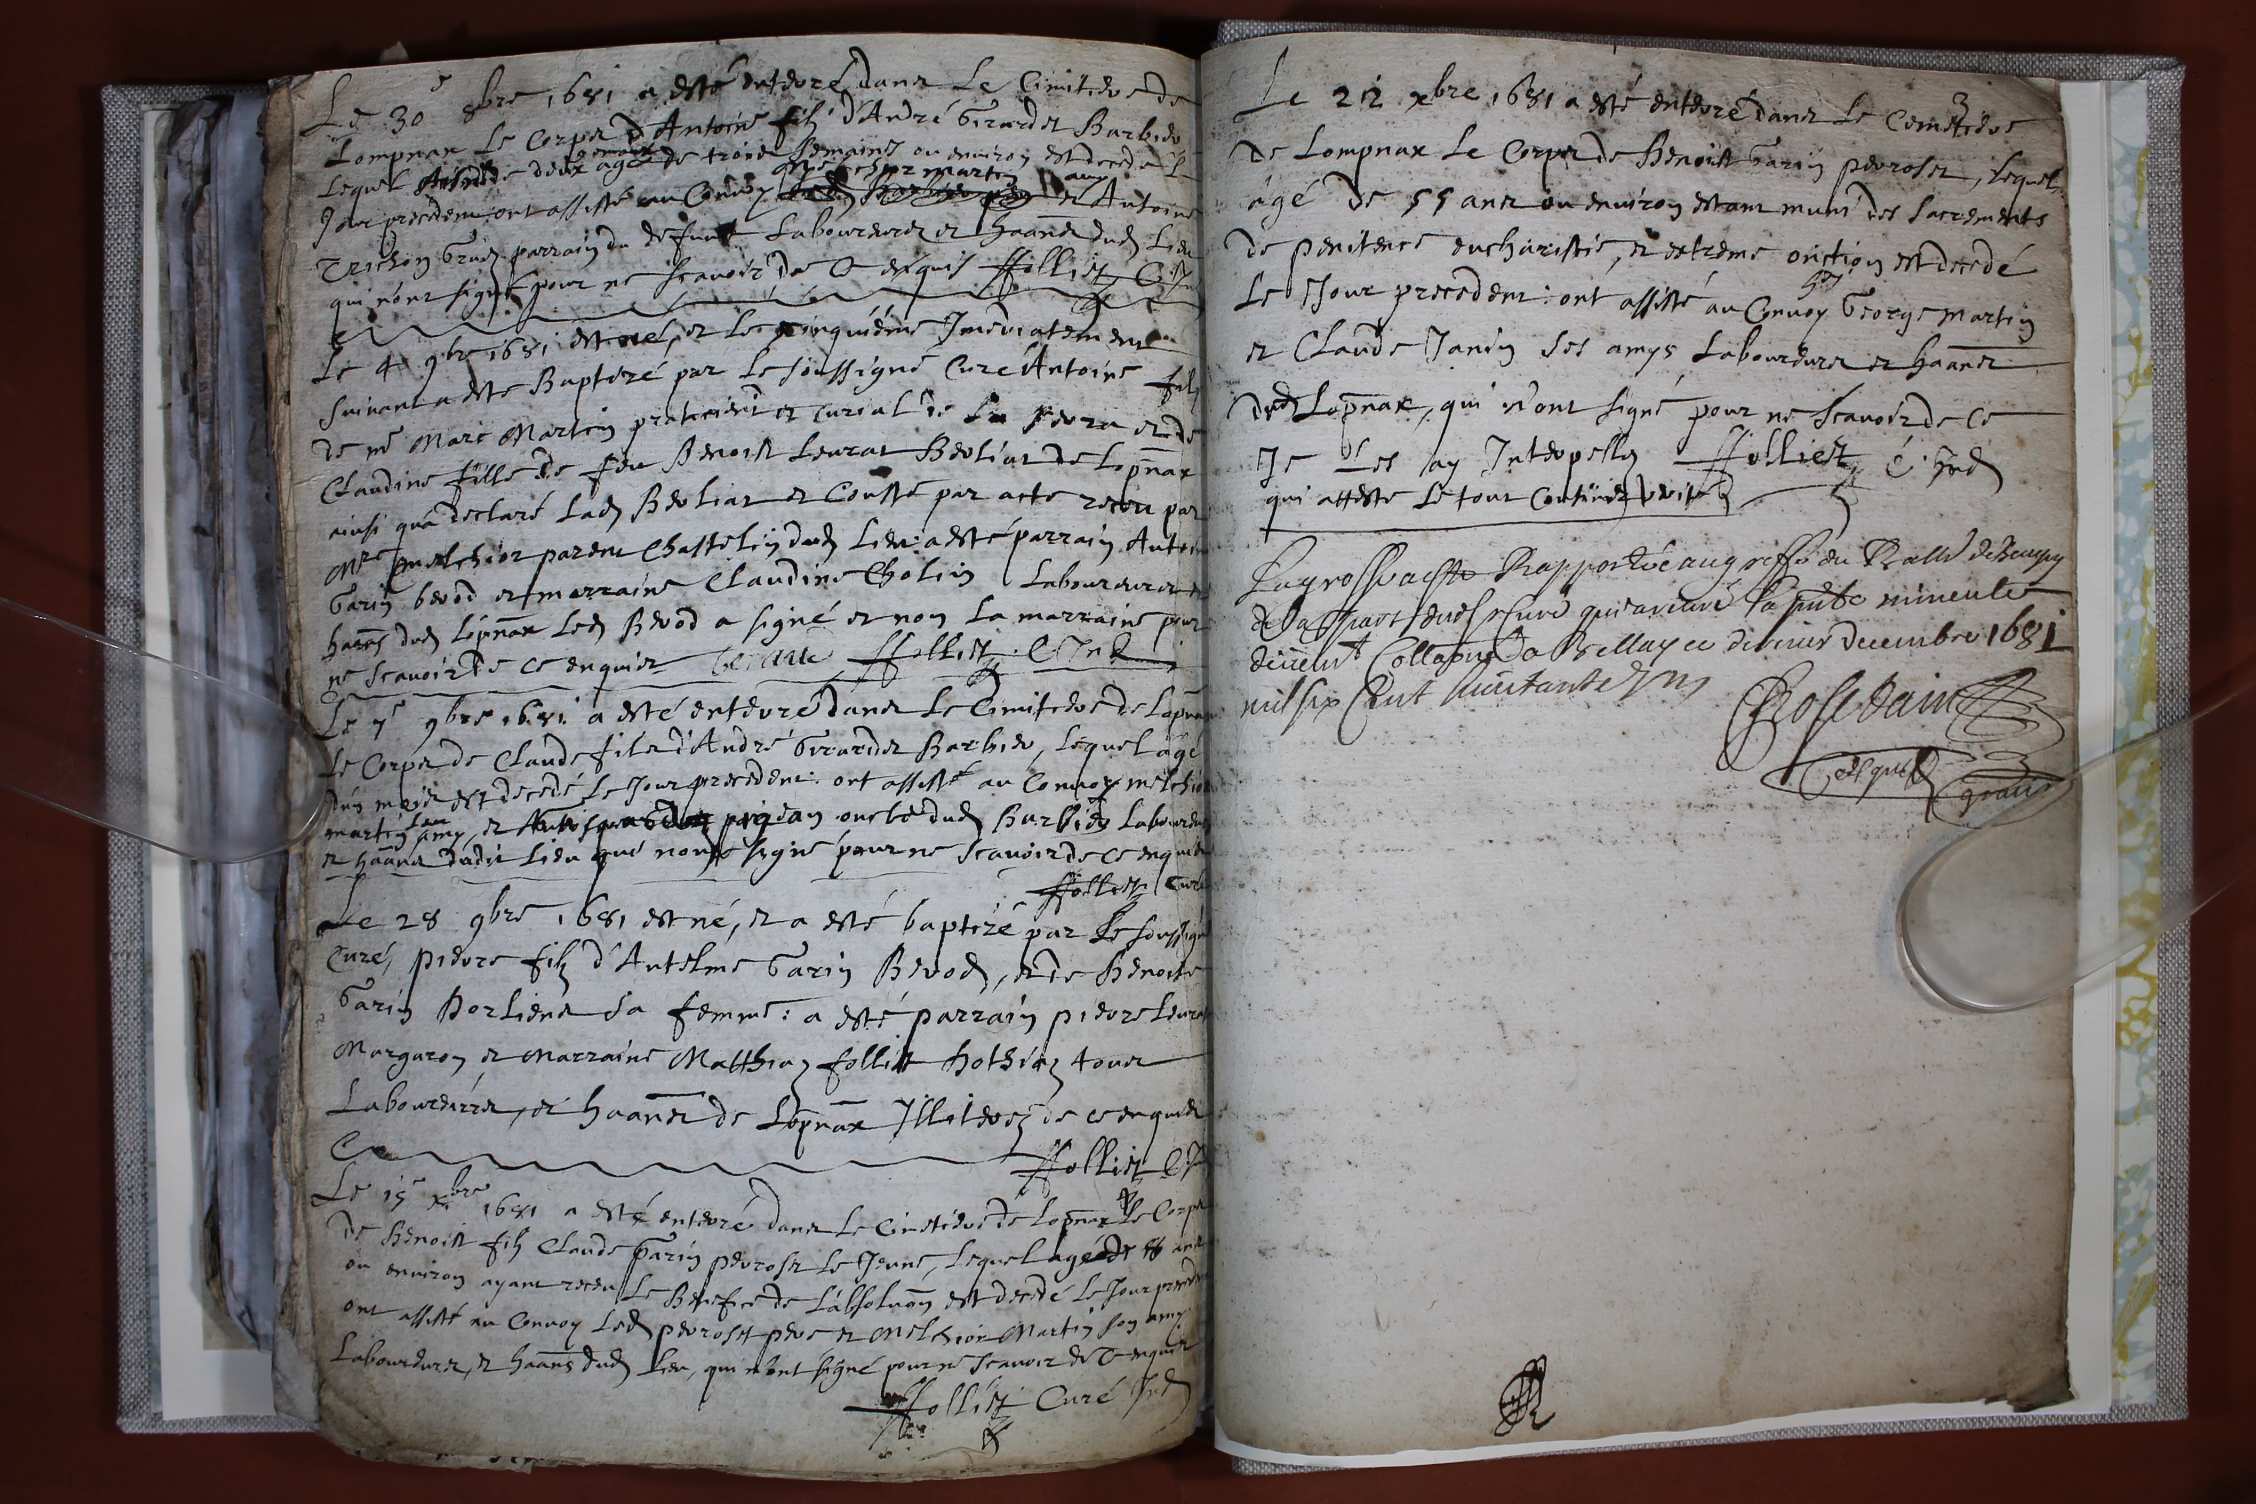 Le 30e 8bre 1681 a esté enterré dans Le Cimitere de
Lompnax Le Corps d'Antoine filz d'André Girardet Barbier
Lequel aagé de trois semaines ou environ est decedé le
Jour precedent ont assisté au Convoy Melchior Martin amy et Antoine
Trichon Gruez parrain du defunt Laboureurs et haans dud Lieu
qui n'ont signé pour ne scavoir de ce enquis Folliet C
Le 4 9bre 1681 est né, et le cinquiéme Jmediatement
suivant a esté Baptizé par le soussigné Curé Antoine fils
de me Marc Martin praticient et curial de et de
Claudine fille de feu Benoist Leurat Berliat de Lopnax
ainsi qu'a declaré Lad Berliat et Conste par acte receu par
Mre Melchior parent Chastelin dud Lieu: a esté parrain Antoi
Garin berod et marraine Claudine Golin Laboureurs et
haans dud Lopnax Led Berod a signé et non La marraine pour
ne scavoir de ce enquise Folliet C
Le 7e 9bre 1681 a esté enterré dans Le Cimitere de Lopnax
Le Corps de Claude fils d'André Girardet Barbier, Lequel agé
d'un mois est decedé Le Jour precedent: ont assisté au Convoy melchior
martin son amy, et oncle dud Barbier Laboureurs
et haans dudit Lieu qui n'ont signé pour ne scavoir de ce enquis
Folliet Curé
Le 28 9bre 1681 est né, et a esté baptizé par Le soussigné
Curé, pierre filz d'Antelme Garin Berod, et de Benoite
Garin Borliene sa femme: a esté parrain pierre Leurat
Margaron et Marraine Matthiaz folliet Bothiaz tous
Laboureurs, et haans de Lopnax Jlliterez de ce enquis
Folliet C
Le 15e xbre 1681 a esté enterré dans Le Cimetiere de Lopnax Le Corps
de Benoist filz Claude Garin perroset Le Jeune, Lequel agé de ans
ou environ ayant receu Le Benefice de L'absoluon est decedé Le Jour precedent
ont assisté au Convoy Led perroset pere et Melchior Martin son amy
Laboureurs, et haans dud Lieu, qui n'ont signé pour ne scavoir de ce enquis
Folliet Curé Jnd
3
Le 22 xbre 1681 a esté enterré dans Le Cemetiere
de Lompnax Le Corps de Benoist Garin perroset, Lequel
âgé de 55 ans ou environ estant muni des sacrements
de penitence eucharistie, et extreme onction est decedé
Le Jour precedent: ont assisté au Convoy George martin
et Claude Janin ses amys Laboureurs et haans
dud Lopnax, qui n'ont signé pour ne scavoir de ce
Je Les ay Interpellez Folliet C. Jnd
qui atteste Le tout Contenir verité
La grosse a esté Rapportée au greffe du Balle de Beugey
de la part dud sr Curé qui a retiré la pnte minute
deuement Collaonné a Belley ce dernier decembre 1681
mil six Cent huictante Un
gratis